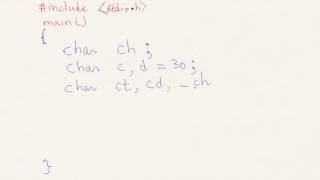 #include <stdio.h>
main()
{
char ch;
char c, d = 30;
char ct, cd, _ch
}